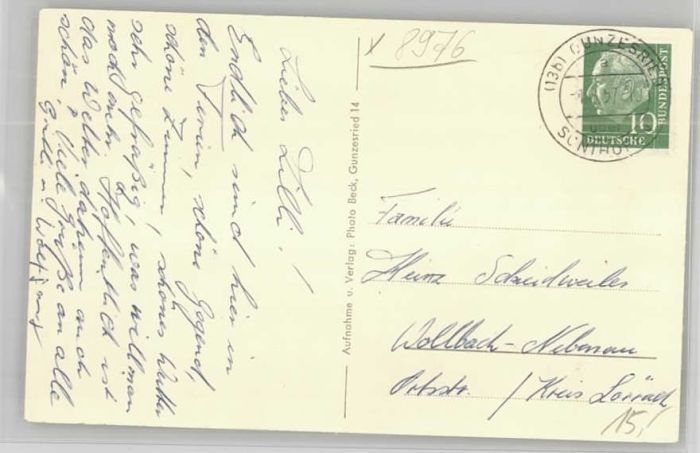 Lieber Lilli!
Endlich sind hier in
den Ferien, schöne Gegend,
schöne Zimmer, schönes Wetter
sehr gefräßig, was will man
noch mehr. Hoffentlich ist
das Wetter daheim auch
schön. Viele Grüße an alle
x 8976
(13b) GUNZESRIED
57
über
SONTHOFEN
10
DEUTSCHE
BUNDESPOST
Aufnahme u. Verlag: Photo Beck, Gunzesried 14
Familie
Heinz Scheidweiler
Wollbach-Nebenau
/ Kreis Lörrach
15,-